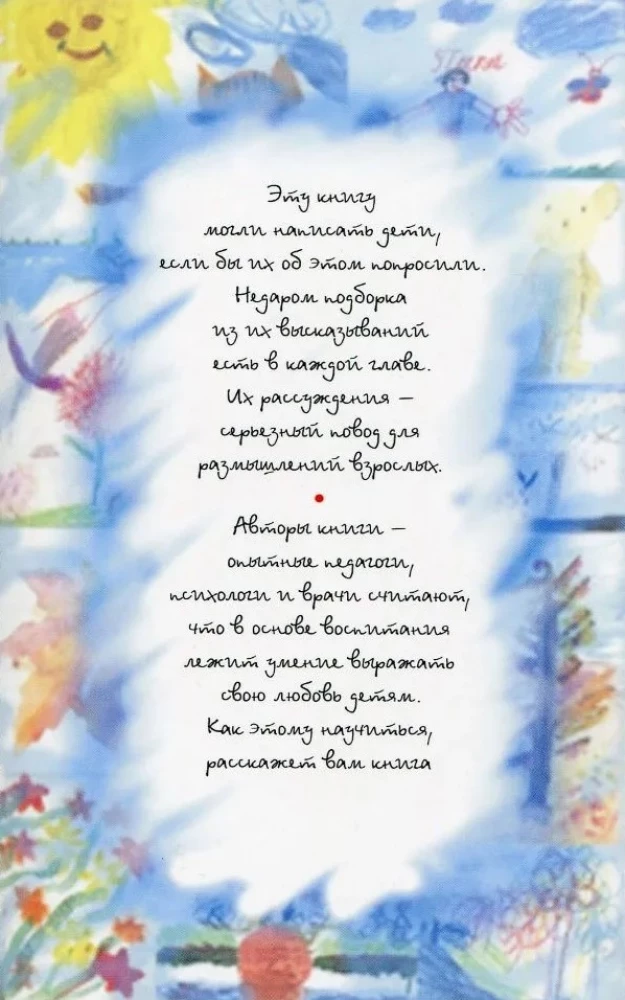 Эту книгу
могли написать дети,
если бы их об этом попросили.
Недаром подборка
из их высказываний
есть в каждой главе.
Их рассуждения —
серьезный повод для
размышлений взрослых.
•
Авторы книги —
опытные педагоги,
психологи и врачи считают,
что в основе воспитания
лежит умение выражать
свою любовь детям.
Как этому научиться,
расскажет вам книга